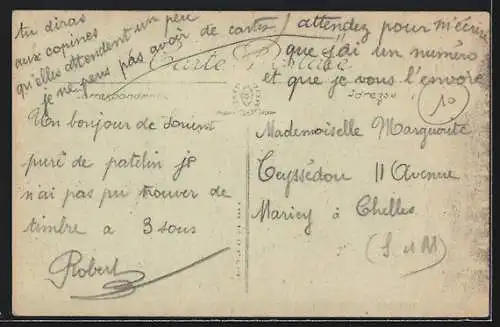 tu diras
aux copines
qu'elles attendent un peu
je ne peux pas avoir de cartes
attendez pour m'écrire
que j'ai un numéro
et que je vous l'envoie
Carte Postale
Correspondance
Adresse
10
Un bonjour de
puré de patelin je
n'ai pas pu trouver de
timbre a 3 sous
Robert
Mademoiselle Marguerite
Teyssédou 11 Avenue
Maricy à Chelles
(S et M)